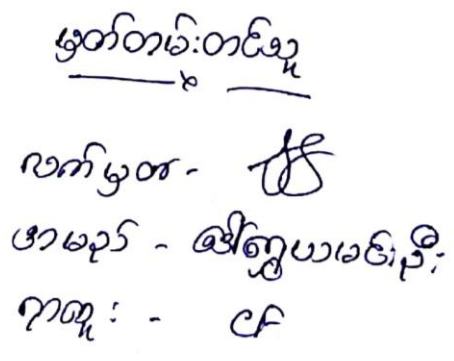 မှတ်တမ်းတင်သူ
လက်မှတ် -
အမည် - ဒေါ် ယမင်းဦး
ရာထူး - CF